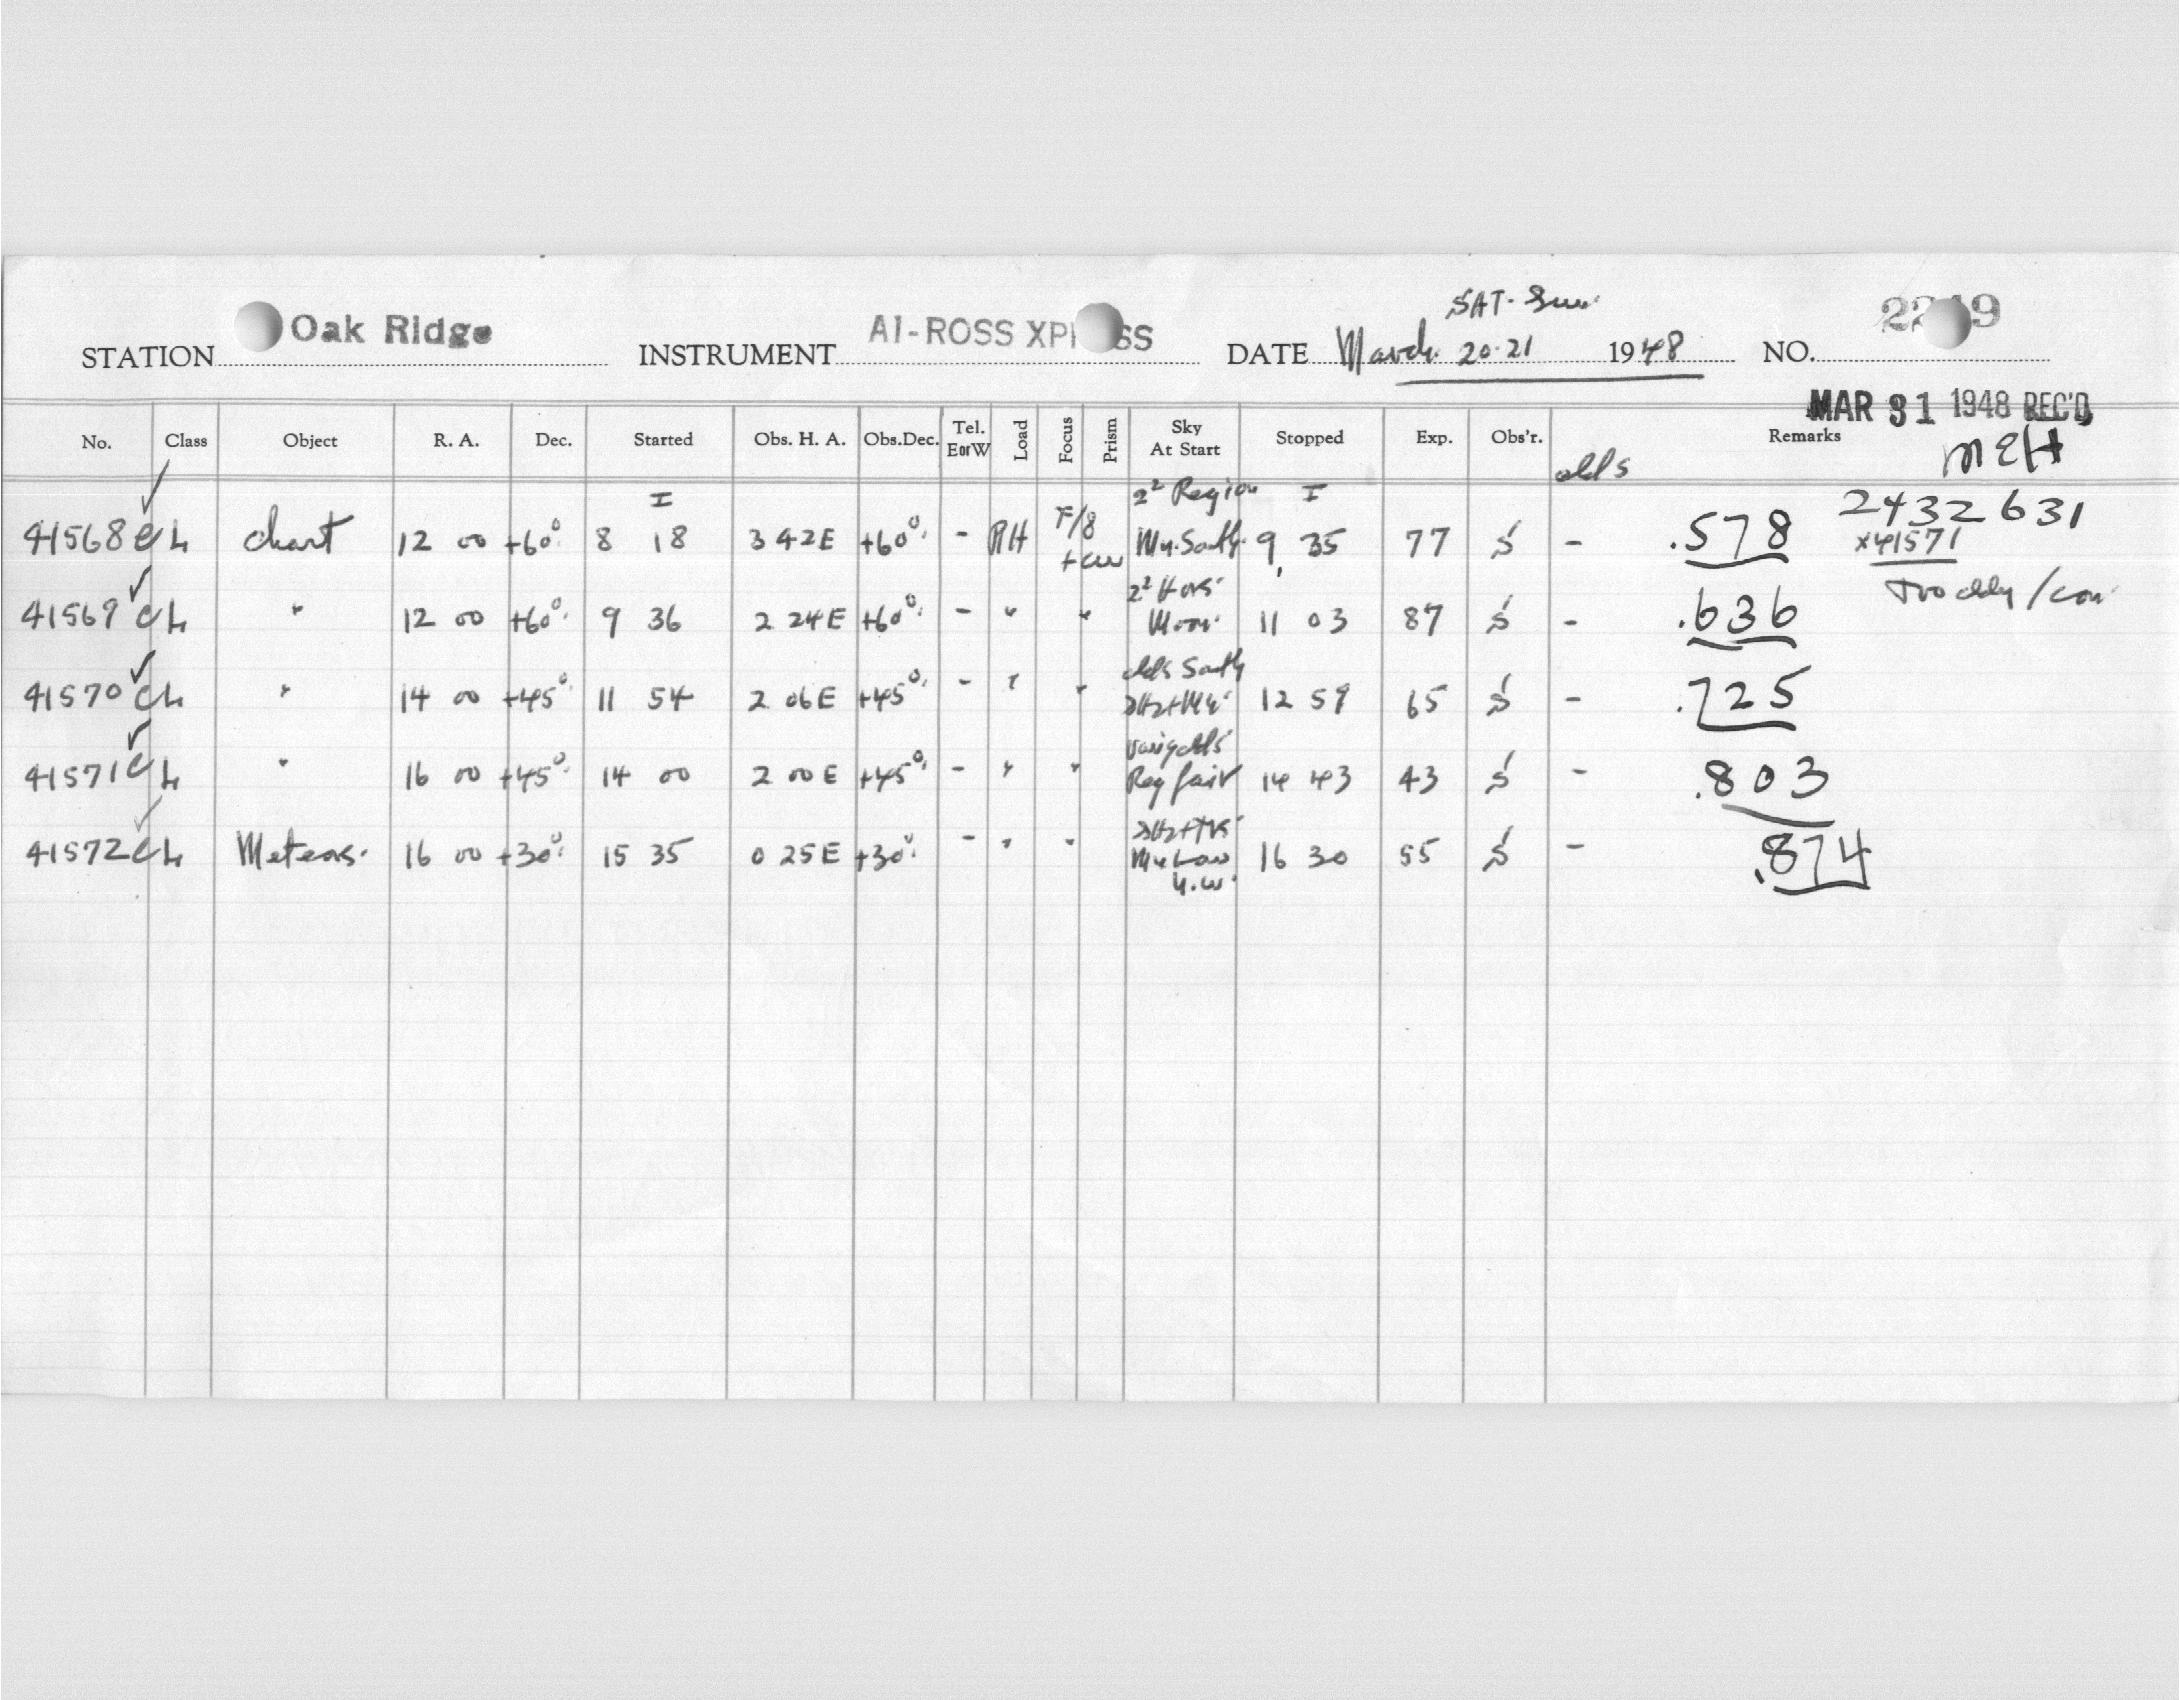 SAT-Sun
STATION Oak Ridge INSTRUMENT AI-ROSS XP SS DATE March 20-21 1948 NO. 22 9
MAR 31 1948 REC'D
No. Class Object R. A. Dec. Started Obs. H. A. Obs.Dec. Tel. EorW Load Focus Prism Sky At Start Stopped Exp. Obs'r. Remarks
MEH
2² Region
41568 C L chart 12 00 +60° 8 18 3 42E +60° - RH F/8 9 35 77 S - .578 2432 631
x41571
41569 C L " 12 00 +60° 9 36 2 24E +60° - " " Moon 11 03 87 S - .636
41570 C L " 14 00 +45° 11 54 2 06E +45° - " " 12 59 65 S - .725
41571 C L " 16 00 +45° 14 00 2 00E +45° - " " Reg fair 14 43 43 S - .803
41572 C L Meteors. 16 00 +30° 15 35 0 25E +30° - " " 16 30 55 S - .874